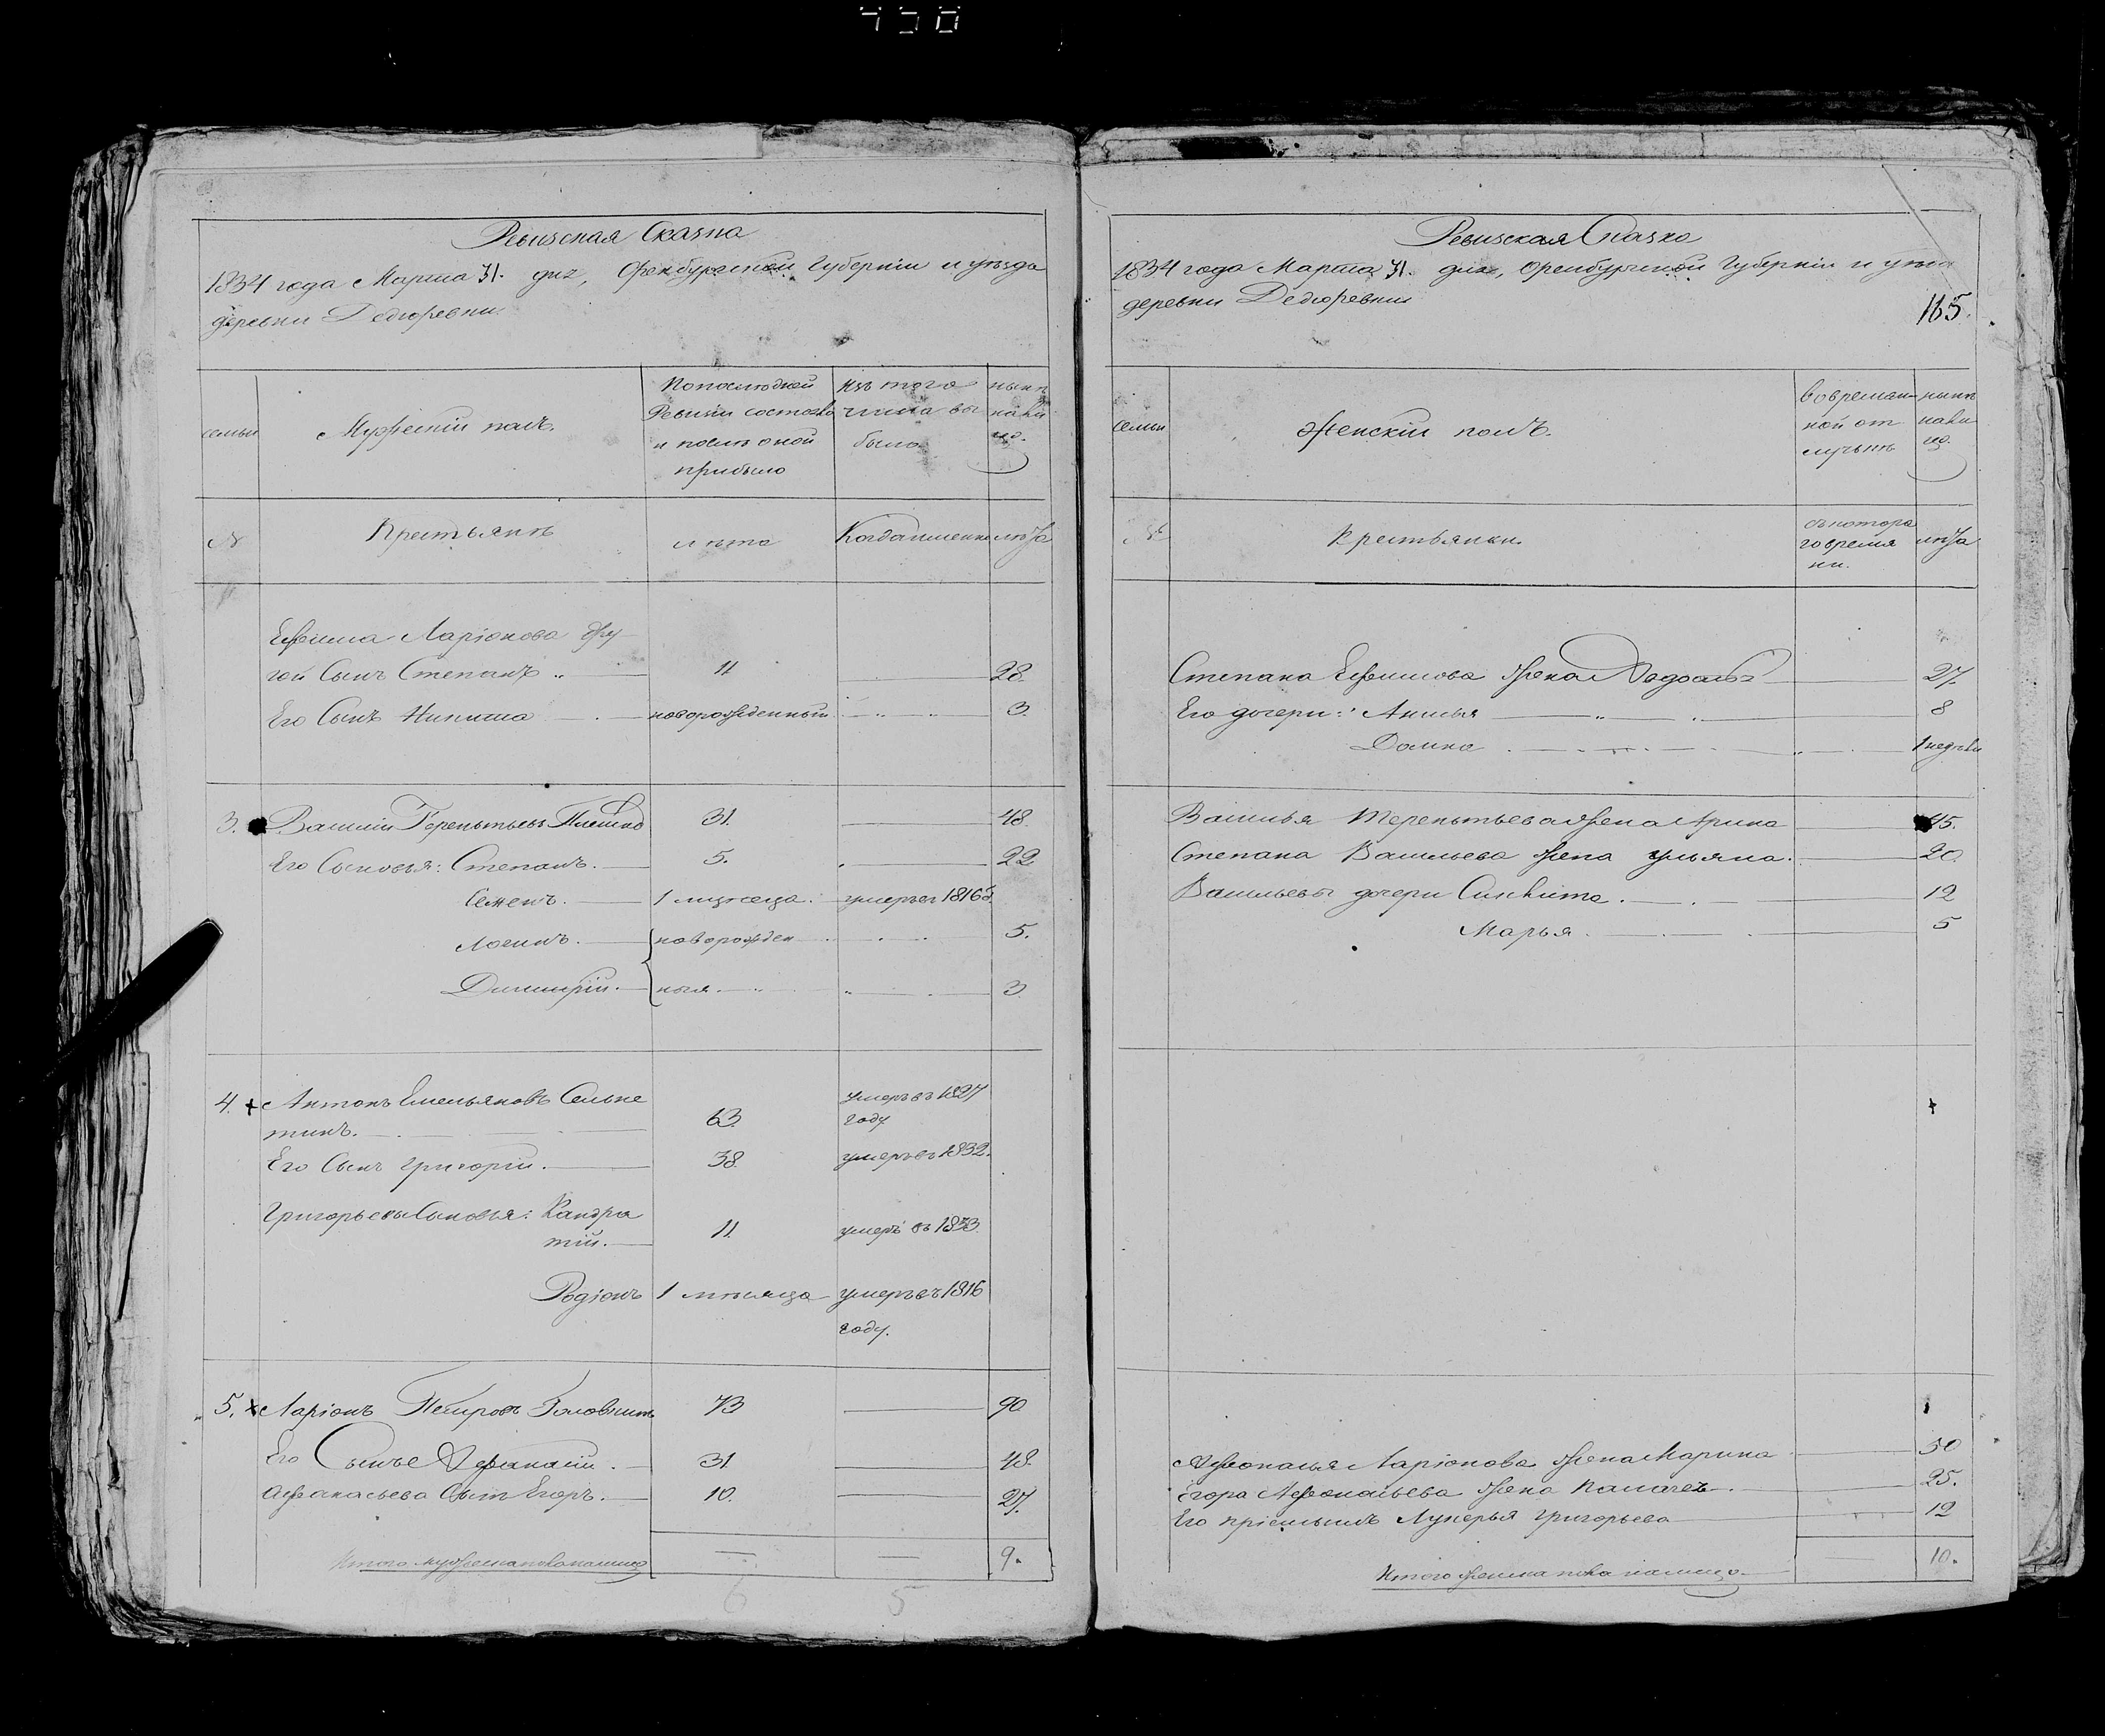 Ревизская Сказка
1834 года Марта 31. дня, Оренбургской Губернiи и уезда
деревни Дедюревки.
семьи
Мужескiй полъ.
По последней
Ревизiи состояло
и после оной
прибыло
Изъ того
числа вы
было
ныне
нали
цо.
№
Крестьяне
лета
Когда именно
лета
Ефима Ларiонова дру
гой Сынъ Степанъ 11 28.
Его Сынъ Никита новорожденный 3.
3. Василiй Терентьевъ 31. 48.
Его Сыновья: Степанъ. 5. 22
Семенъ. 1 месеца. умеръ въ 1816
Логинъ. новорожден 5.
Дмитрiй. ныя. 3
4. Антонъ Емельяновъ Сельке
тинъ. 63. умеръ въ 1827
году
Его Сынъ Григорiй. 38. умеръ въ 1832.
Григорьевы Сыновья: Кандра
тiй. 11. умеръ въ 1833.
Родiонъ 1 месяца умеръ въ 1816
году.
5. Ларiонъ Петровъ 73 90
Его Сынъ Афанасiй. 31. 48.
Афанасьева Сынъ Егоръ. 10. 27.
Итого мужеска пола на лицо 9.
6 5
Ревизская Сказка
1834 года Марта 31. дня, Оренбургской Губернiи и уезда
деревни Дедюревки
165.
семьи
Женскiй полъ.
во времян
ной от
лучьке
ныне
нали
цо.
№
Крестьянки.
съ котора
го время
ни.
лета
Степана Ефимова жена Федосья 27.
Его дочери: Акилья 8
Домна 1 недели
Василья Терентьева жена Арина 45.
Степана Васильева жена Ульяна. 20.
Васильевы дочери 12
Марья 5
Афонасья Ларiонова жена Марина 50
Егора Афонасьева жена 25.
Его Лукерья Григорьева 12
Итого женска пола на лицо. 10.